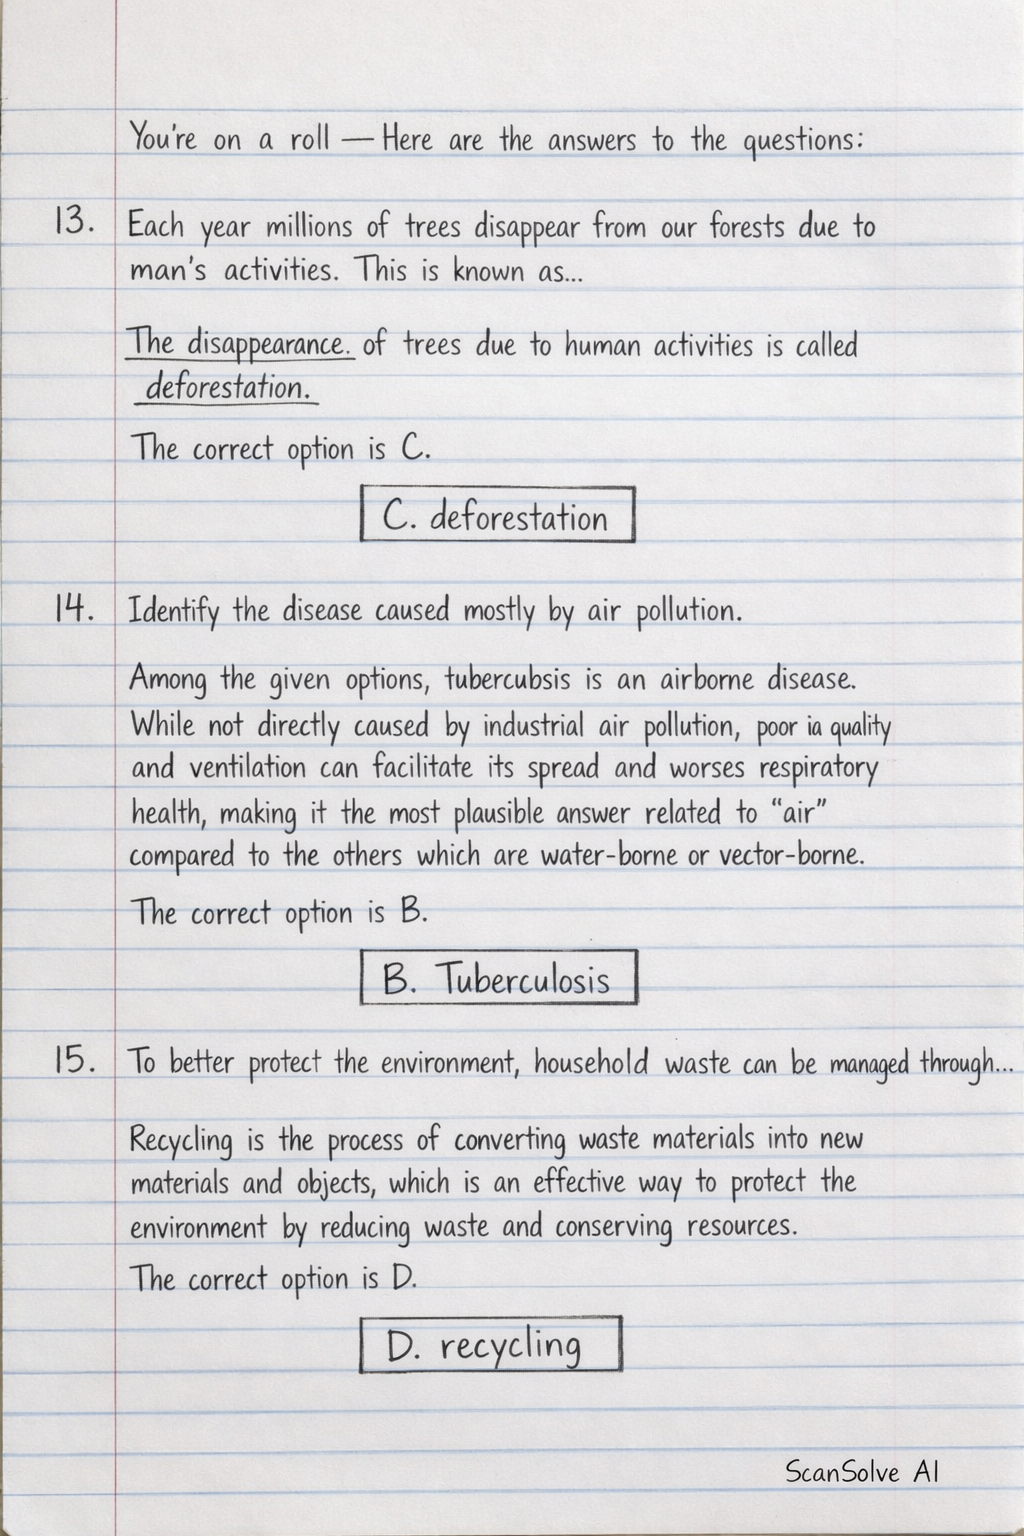 You're on a roll — Here are the answers to the questions:
13. Each year millions of trees disappear from our forests due to
man's activities. This is known as...
The disappearance. of trees due to human activities is called
deforestation.
The correct option is C.
C. deforestation
14. Identify the disease caused mostly by air pollution.
Among the given options, tubercubsis is an airborne disease.
While not directly caused by industrial air pollution, poor ia quality
and ventilation can facilitate its spread and worses respiratory
health, making it the most plausible answer related to “air”
compared to the others which are water-borne or vector-borne.
The correct option is B.
B. Tuberculosis
15. To better protect the environment, household waste can be managed through...
Recycling is the process of converting waste materials into new
materials and objects, which is an effective way to protect the
environment by reducing waste and conserving resources.
The correct option is D.
D. recycling
ScanSolve AI